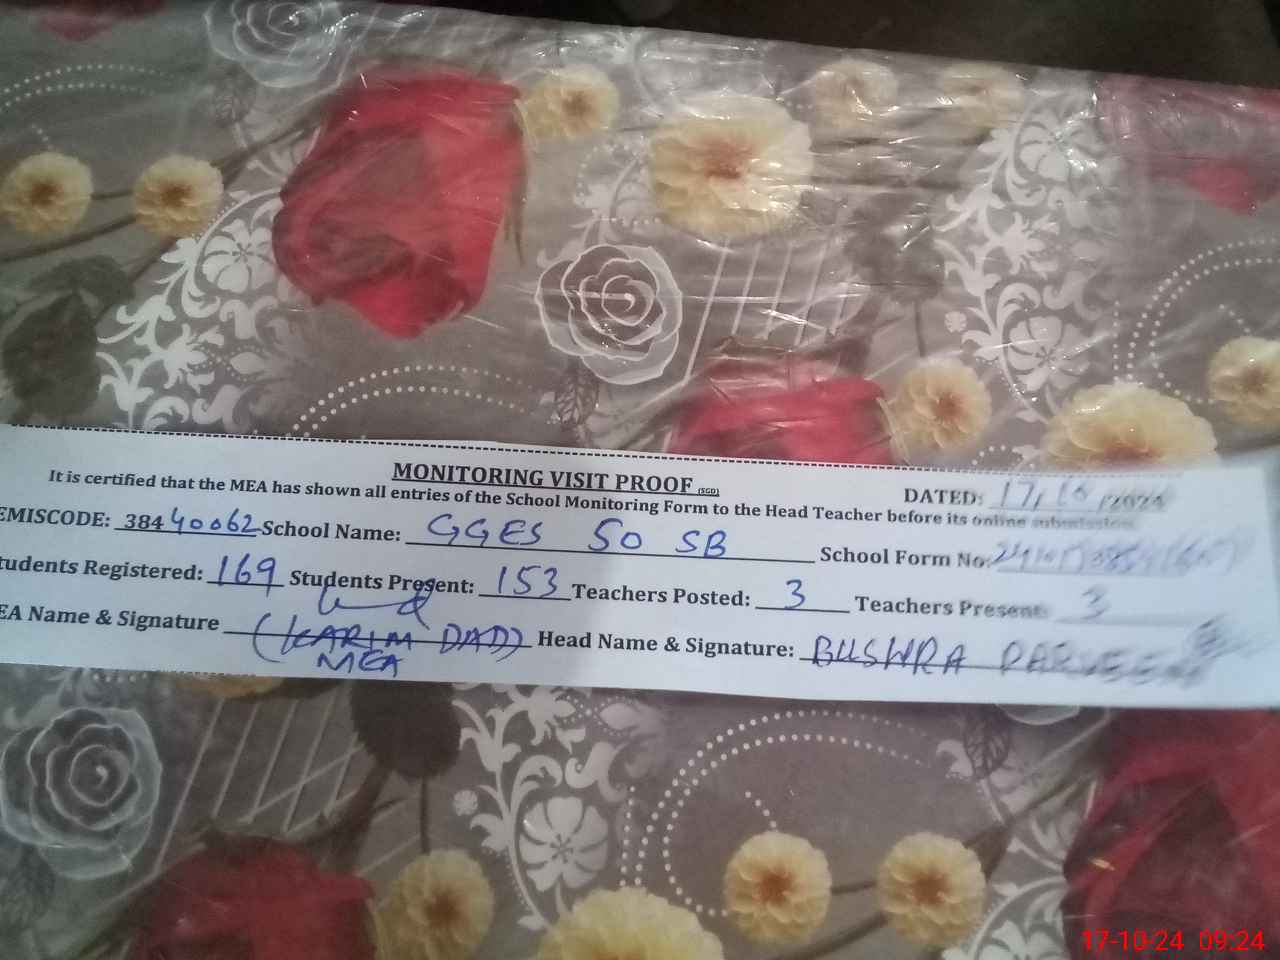 MONITORING VISIT PROOF (SGD)
DATED: 17/10/2024
It is certified that the MEA has shown all entries of the School Monitoring Form to the Head Teacher before its online submission.
EMISCODE: 38440062 School Name: GGES 50 SB School Form No:
tudents Registered: 169 Students Present: 153 Teachers Posted: 3 Teachers Present: 3
EA Name & Signature (KARIM DAD) Head Name & Signature: BUSHRA PARVEEN
MEA
17-10-24 09:24